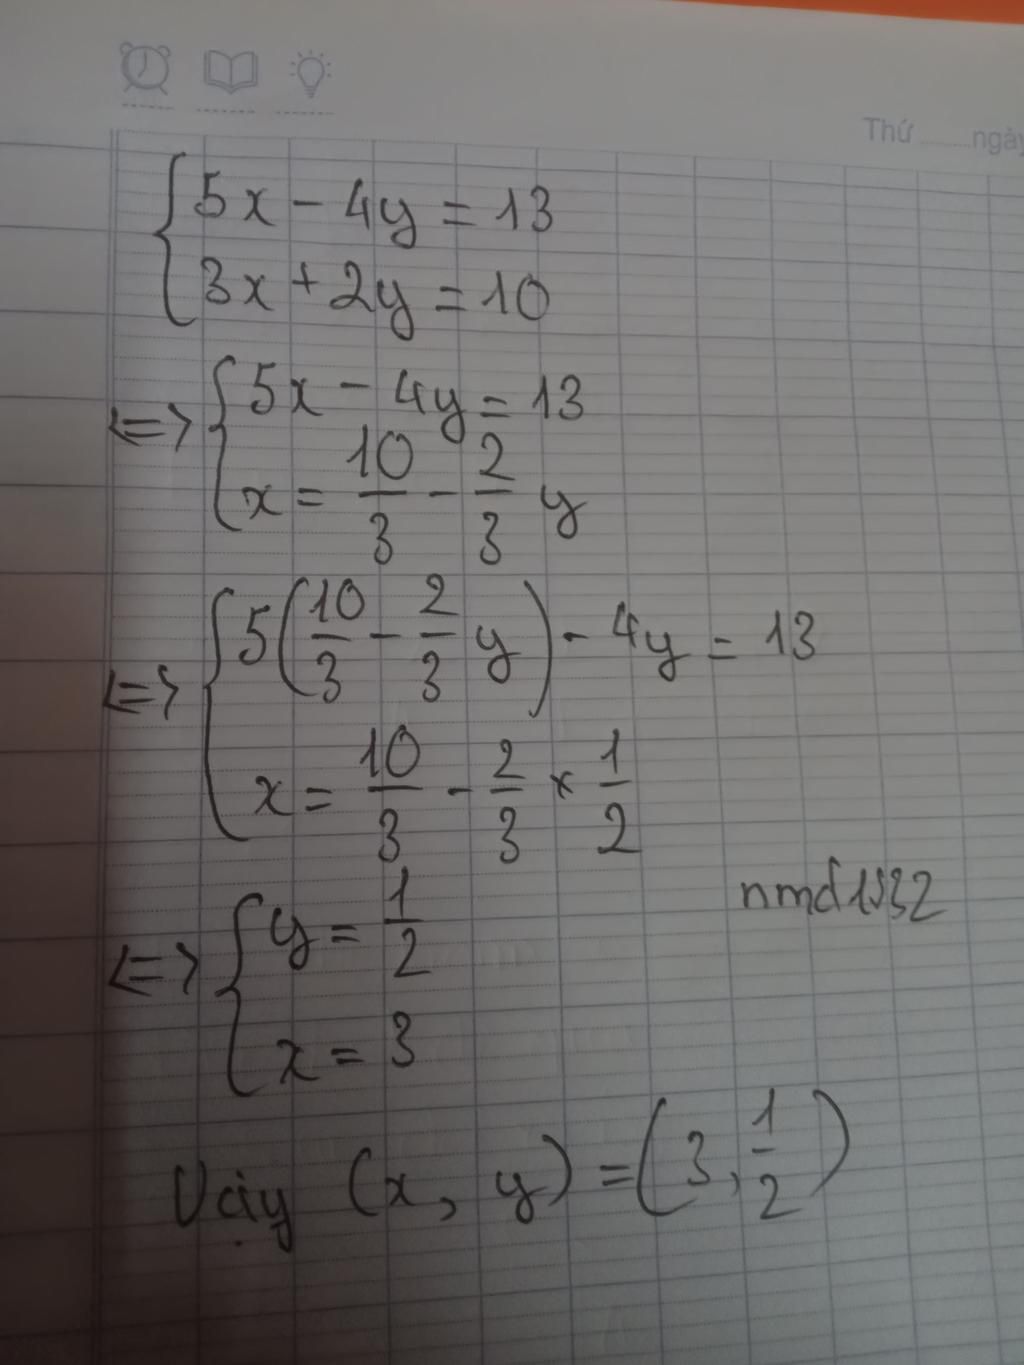 Thứ ........ngày
5x - 4y = 13
3x + 2y = 10
<=> 5x - 4y = 13
x = 10/3 - 2/3 y
<=> 5(10/3 - 2/3 y) - 4y = 13
x = 10/3 - 2/3 × 1/2
nmd1932
<=> y = 1/2
x = 3
Vậy (x, y) = (3, 1/2)